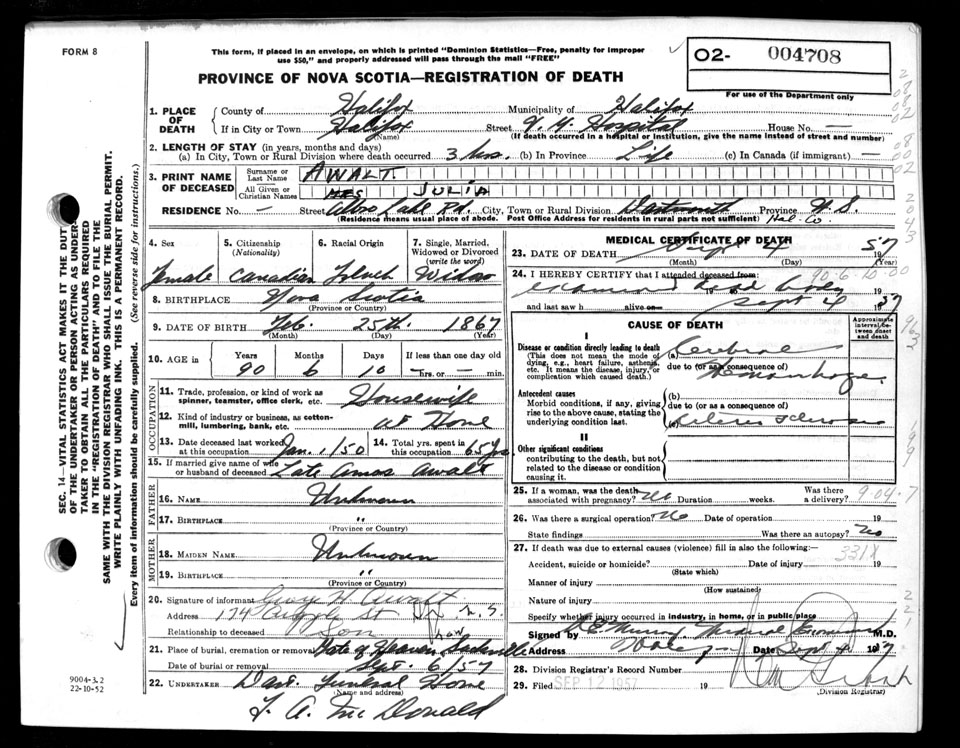 FORM 8
This form, if placed in an envelope, on which is printed "Dominion Statistics—Free, penalty for improper
use $50," and properly addressed will pass through the mail "FREE"
O2- 004708
PROVINCE OF NOVA SCOTIA—REGISTRATION OF DEATH
For use of the Department only
1. PLACE OF DEATH
County of Halifax Municipality of Halifax
If in City or Town Halifax Street Hospital House No. —
(Name) (If death occurred in a hospital or institution, give the name instead of street and number)
2. LENGTH OF STAY (in years, months and days)
(a) In City, Town or Rural Division where death occurred 3 hrs. (b) In Province Life (c) In Canada (if immigrant) —
3. PRINT NAME OF DECEASED
Surname or Last Name AWALT.
All Given or Christian Names JULIA
RESIDENCE No. — Street Lake Rd. City, Town or Rural Division Dartmouth Province N.S.
(Residence means usual place of abode. Post Office Address for residents in rural parts not sufficient) Hal. Co.
4. Sex
Female
5. Citizenship
(Nationality)
Canadian
6. Racial Origin
French
7. Single, Married, Widowed or Divorced
(write the word)
Widow
8. BIRTHPLACE Nova Scotia
(Province or Country)
9. DATE OF BIRTH Feb. 25th. 1867
(Month) (Day) (Year)
10. AGE in
Years Months Days If less than one day old
90 6 10 — hrs. or — min.
OCCUPATION
11. Trade, profession, or kind of work as spinner, teamster, office clerk, etc. Housewife
12. Kind of industry or business, as cotton-mill, lumbering, bank, etc. at Home
13. Date deceased last worked at this occupation Jan. 1/50
14. Total yrs. spent in this occupation 65 yrs.
15. If married give name of wife or husband of deceased Late Amos Awalt
FATHER
16. NAME Unknown
17. BIRTHPLACE "
(Province or Country)
MOTHER
18. MAIDEN NAME Unknown
19. BIRTHPLACE "
(Province or Country)
20. Signature of informant George H. Awalt
Address 174 Argyle St N.S.
Relationship to deceased Son
21. Place of burial, cremation or removal Gate of Heaven Sackville
Date of burial or removal Sept. 6/57
22. UNDERTAKER Dart. Funeral Home
(Name and address)
J. A. McDonald
MEDICAL CERTIFICATE OF DEATH
23. DATE OF DEATH Sept 4 1957
(Month) (Day) (Year)
24. I HEREBY CERTIFY that I attended deceased from:
examined dead body
and last saw h alive on Sept 4 1957
90-6-10-00
CAUSE OF DEATH
Approximate interval between onset and death
I
Disease or condition directly leading to death
(This does not mean the mode of dying, e.g., heart failure, asthenia, etc. It means the disease, injury, or complication which caused death.)
(a) Cerebral
due to (or as a consequence of)
Hemorrhage
Antecedent causes
Morbid conditions, if any, giving rise to the above cause, stating the underlying condition last.
(b)
due to (or as a consequence of)
Arterio Sclerosis
II
Other significant conditions
contributing to the death, but not related to the disease or condition causing it.
25. If a woman, was the death associated with pregnancy? No Duration weeks. Was there a delivery?
904-7
26. Was there a surgical operation? No Date of operation 19
State findings Was there an autopsy? No
27. If death was due to external causes (violence) fill in also the following:—
331X
Accident, suicide or homicide? Date of injury 19
(State which)
Manner of injury
(How sustained)
Nature of injury
Specify whether injury occurred in industry, in home, or in public place
Signed by Murray Medical Examiner M.D.
Address Halifax Date Sept 4 1957
28. Division Registrar's Record Number
29. Filed SEP 12 1957 19
(Division Registrar)
SEC. 14—VITAL STATISTICS ACT MAKES IT THE DUTY
OF THE UNDERTAKER OR PERSON ACTING AS UNDER-
TAKER TO OBTAIN ALL THE PARTICULARS REQUIRED
IN THE "REGISTRATION OF DEATH" AND TO FILE THE
SAME WITH THE DIVISION REGISTRAR WHO SHALL ISSUE THE BURIAL PERMIT.
WRITE PLAINLY WITH UNFADING INK. THIS IS A PERMANENT RECORD.
Every item of information should be carefully supplied. (See reverse side for instructions.)
9004-3.2
22-10-52